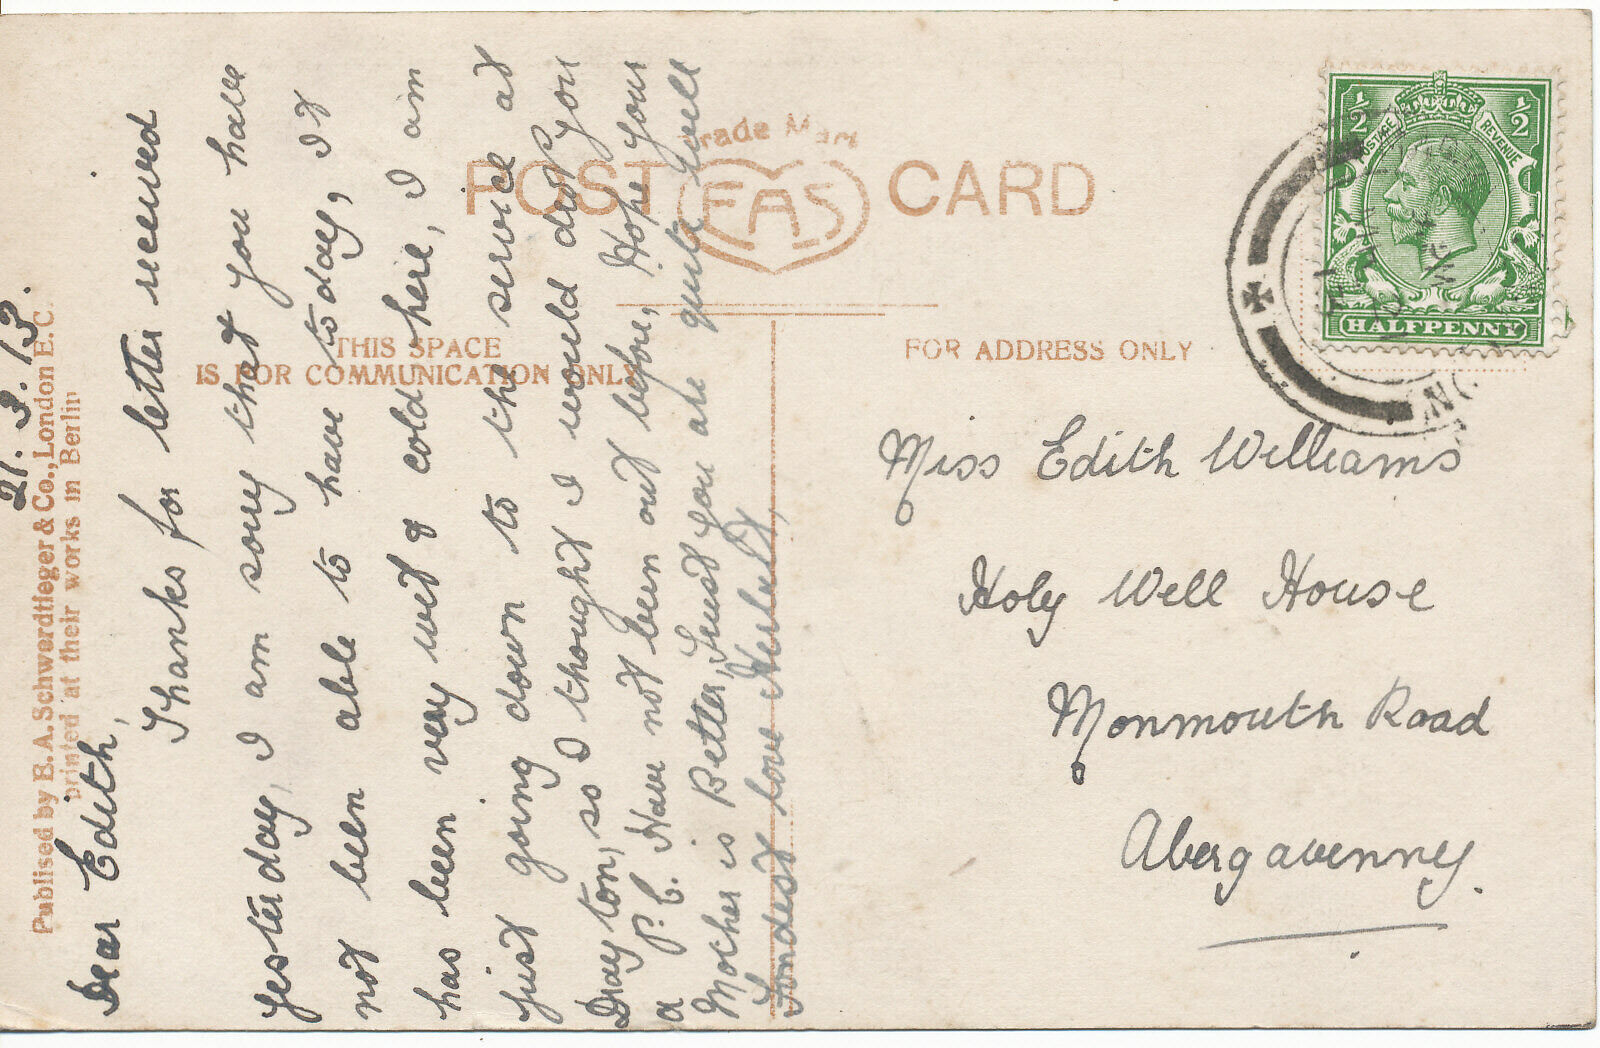 21.3.13.
Dear Edith,
Thanks for letter received
yesterday, I am sorry that you have
not been able to have to day, It
has been very wet & cold here, I am
just going down to the service at
Drayton, so I thought I would drop you
a P.C. Have not been out before, Hope your
Mother is Better, Trust you are quite well
Fondest love Herbert,
Published by B.A. Schwerdtfeger & Co., London E.C.
printed at their works in Berlin
POST CARD
Trade Mark
FAS
THIS SPACE
IS FOR COMMUNICATION ONLY
FOR ADDRESS ONLY
½ ½
POSTAGE REVENUE
HALFPENNY
Miss Edith Williams
Holy Well House
Monmouth Road
Abergavenny.